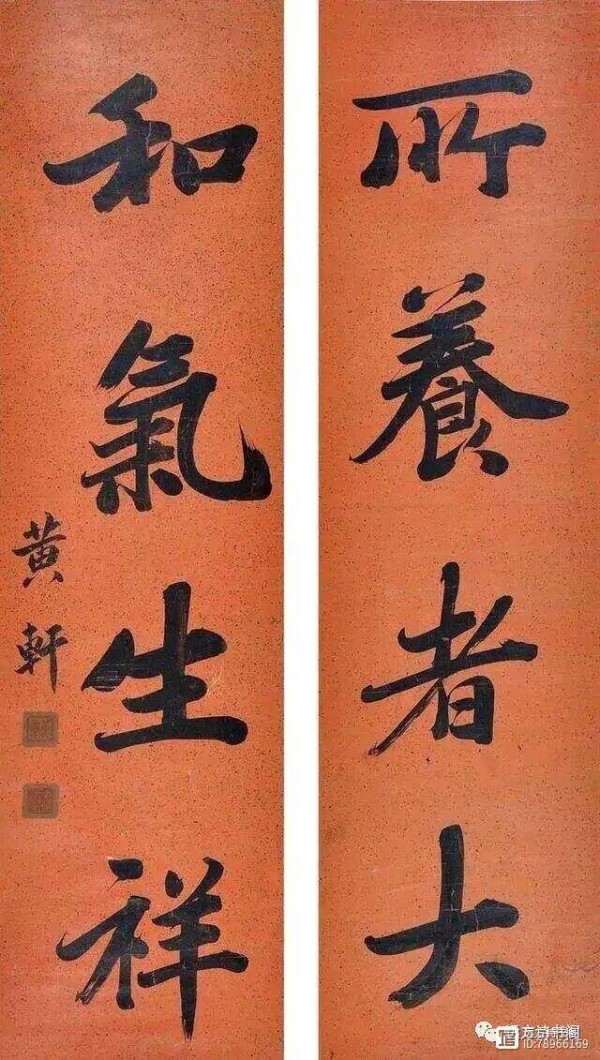 所養者大
和氣生祥
黄軒
ID:78966169